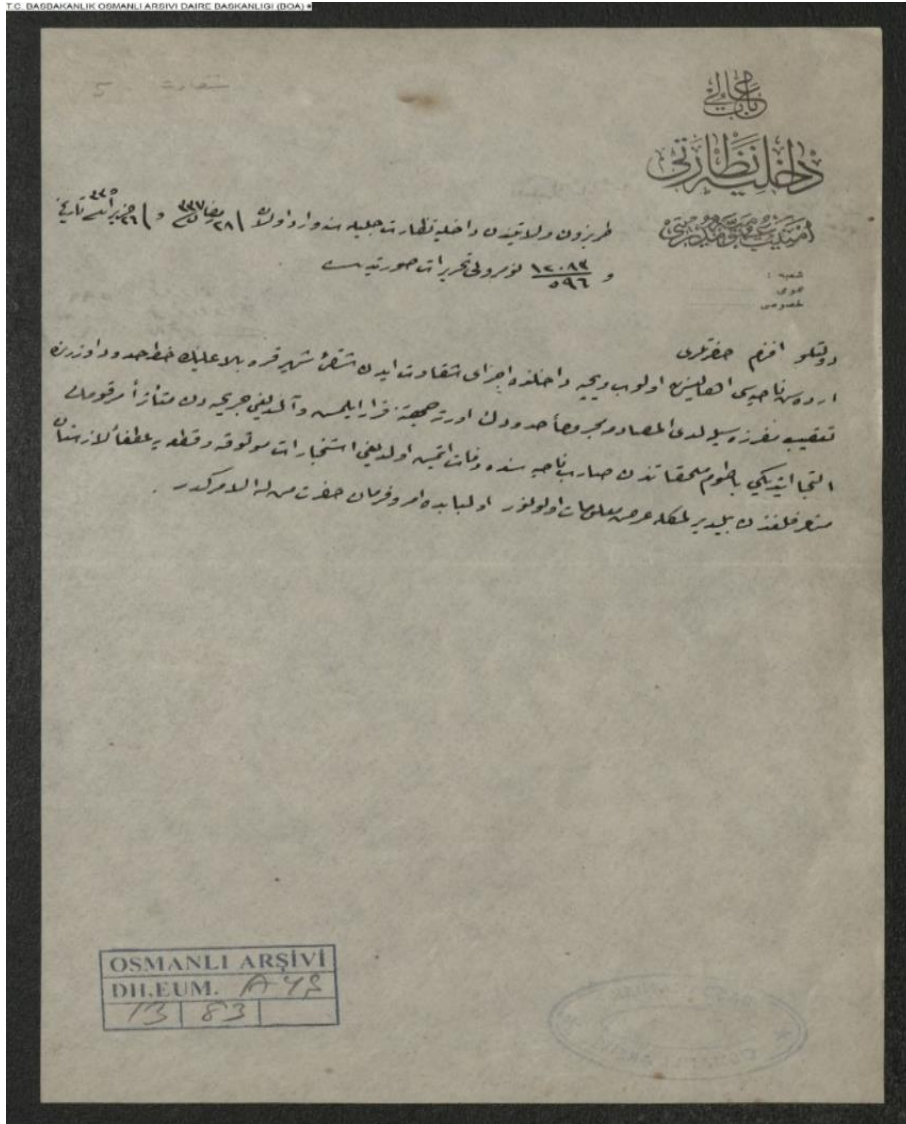 T.C. BAŞBAKANLIK OSMANLI ARŞİVİ DAİRE BAŞKANLIĞI (BOA)
شقاوت
باب عالی
داخلیه نظارتی
امنیت عمومیه مدیریتی
شعبه :
عمومی
خصوصی
طربزون ولایتندن داخلیه نظارت جلیله سنه وارد اولان ٢٨ رمضان ٣٣٧ و ٢٦ حزیران ٣٣٥ تاریخ
و ١٢٠٨٣/٥٩٦ نومرولی تحریرات صورتیدر
دولتلو افندم حضرتلری
ناحیه سی اهالیسندن اولوب ویچه داخلنده اجرای شقاوت ایدن شقئ شهیر علینك خط حدود اوزرنده
تعقیب مفرزه سیله لدی المصادمه مجروحاً حدودك اورته جهتنه فرار ایلمش و آلدیغی جریحه دن متأثراً مرقومك
التجا ایتدیکی باطوم ملحقاتندن ناحیه سنده وفات ایتمش اولدیغی استخبارات موثوقه و قطعیه یه عطفاً لازستان
متصرفلغندن بیلدیرلمکله عرض معلومات اولونور اولبابده امر و فرمان حضرت من له الامرکدر .
OSMANLI ARŞİVİ
DH.EUM. AYŞ
13 83